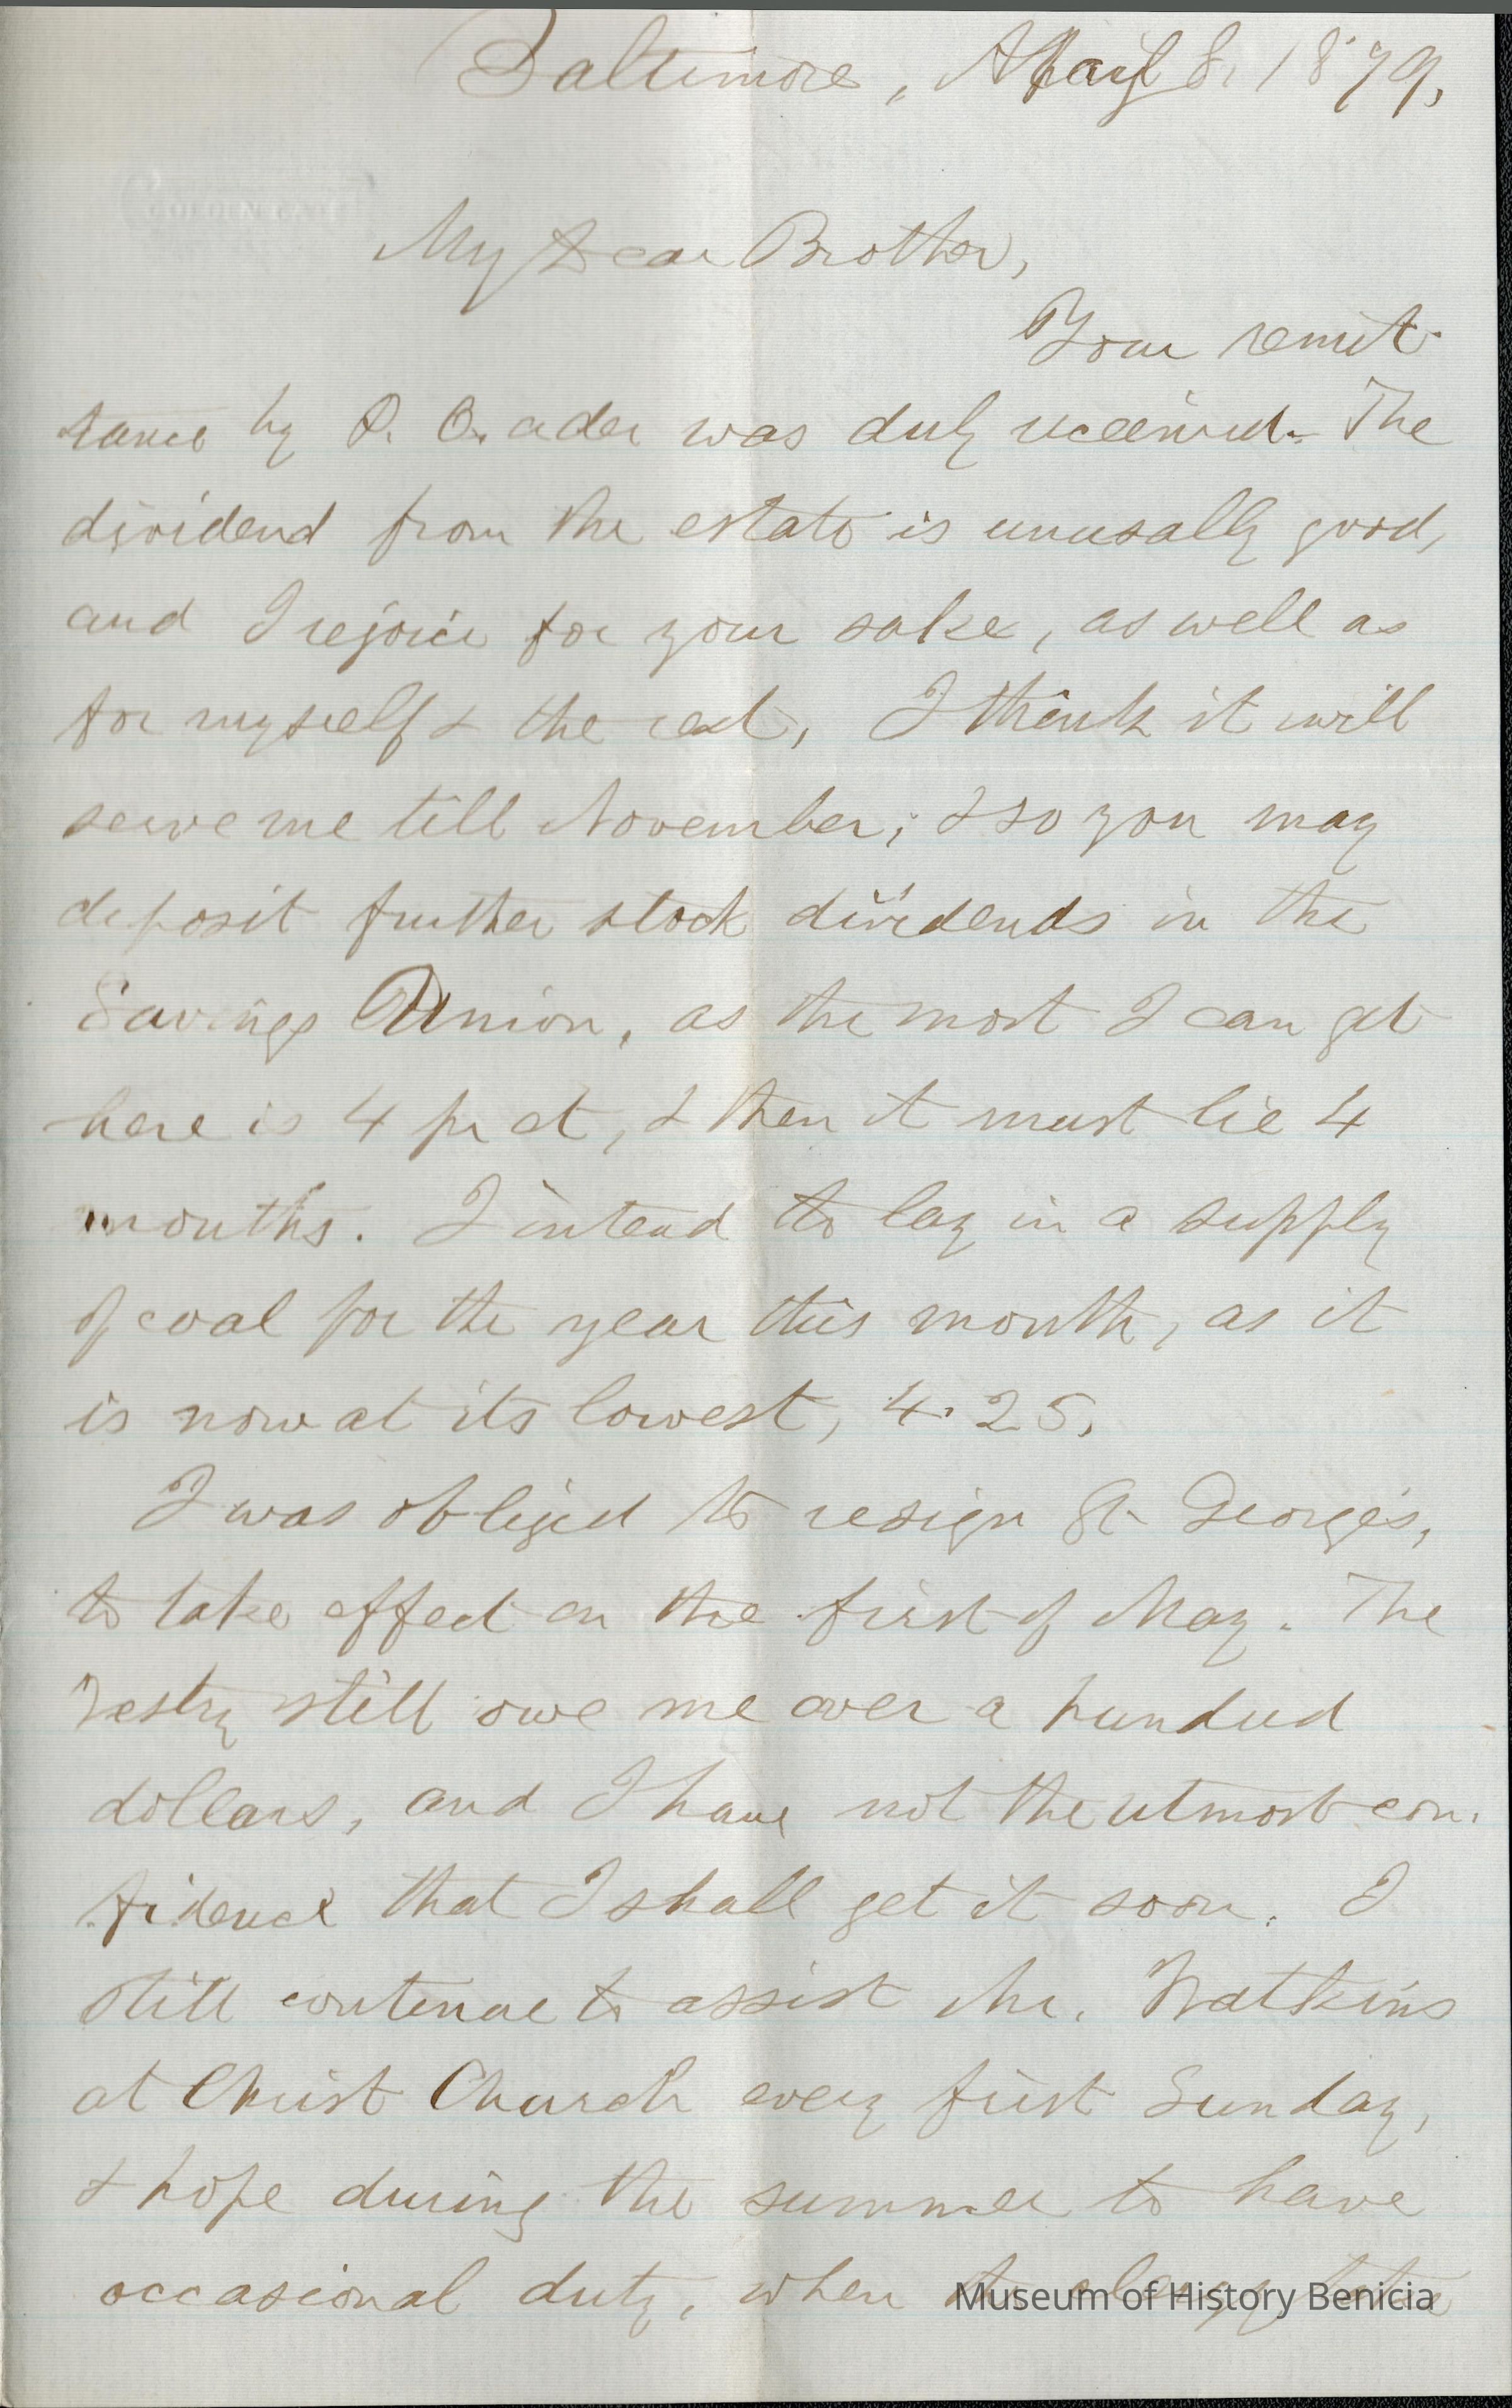 Baltimore, April 8. 1879,
My Dear Brother,
Your remit-
tance by P. O. order was duly received. The
dividend from the estate is unusally good,
and I rejoice for your sake, as well as
for myself & the rest, I think it will
serve me till November; & so you may
deposit further stock dividends in the
Savings Union, as the most I can get
here is 4 pr ct, & then it must lie 4
months. I intend to lay in a supply
of coal for the year this month, as it
is now at its lowest, 4.25.
I was obliged to resign St George's,
to take effect on the first of May. The
Vestry still owe me over a hundred
dollars, and I have not the utmost con-
fidence that I shall get it soon. I
still continue to assist Mr. Watkins
at Christ Church every first Sunday,
& hope during the summer to have
occasional duty, when the clergy take
Museum of History Benicia